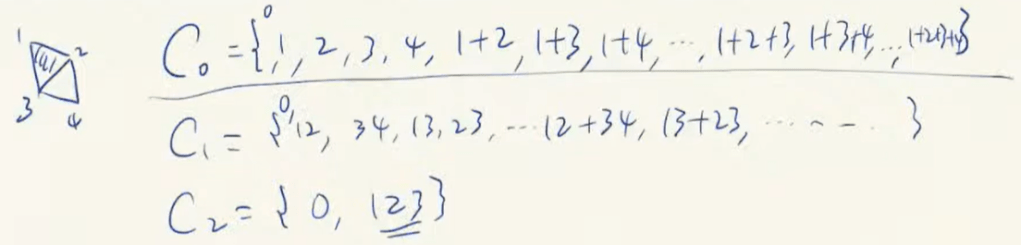 C₀ = {0, 1, 2, 3, 4, 1+2, 1+3, 1+4, ..., 1+2+3, 1+3+4, ..., 1+2+3+4}
C₁ = {0, 12, 34, 13, 23, ... 12+34, 13+23, ......}
C₂ = {0, 123}
1
2
3
4